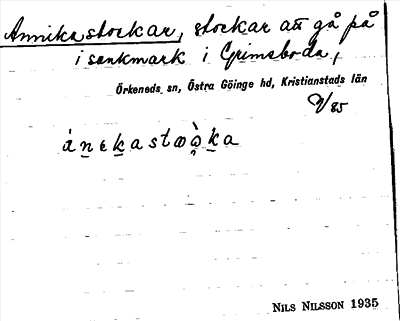 Annikastockar, stockar att gå på
i sankmark i Grimsboda,
Örkeneds sn, Östra Göinge hd, Kristianstads län
9/85
NILS NILSSON 1935